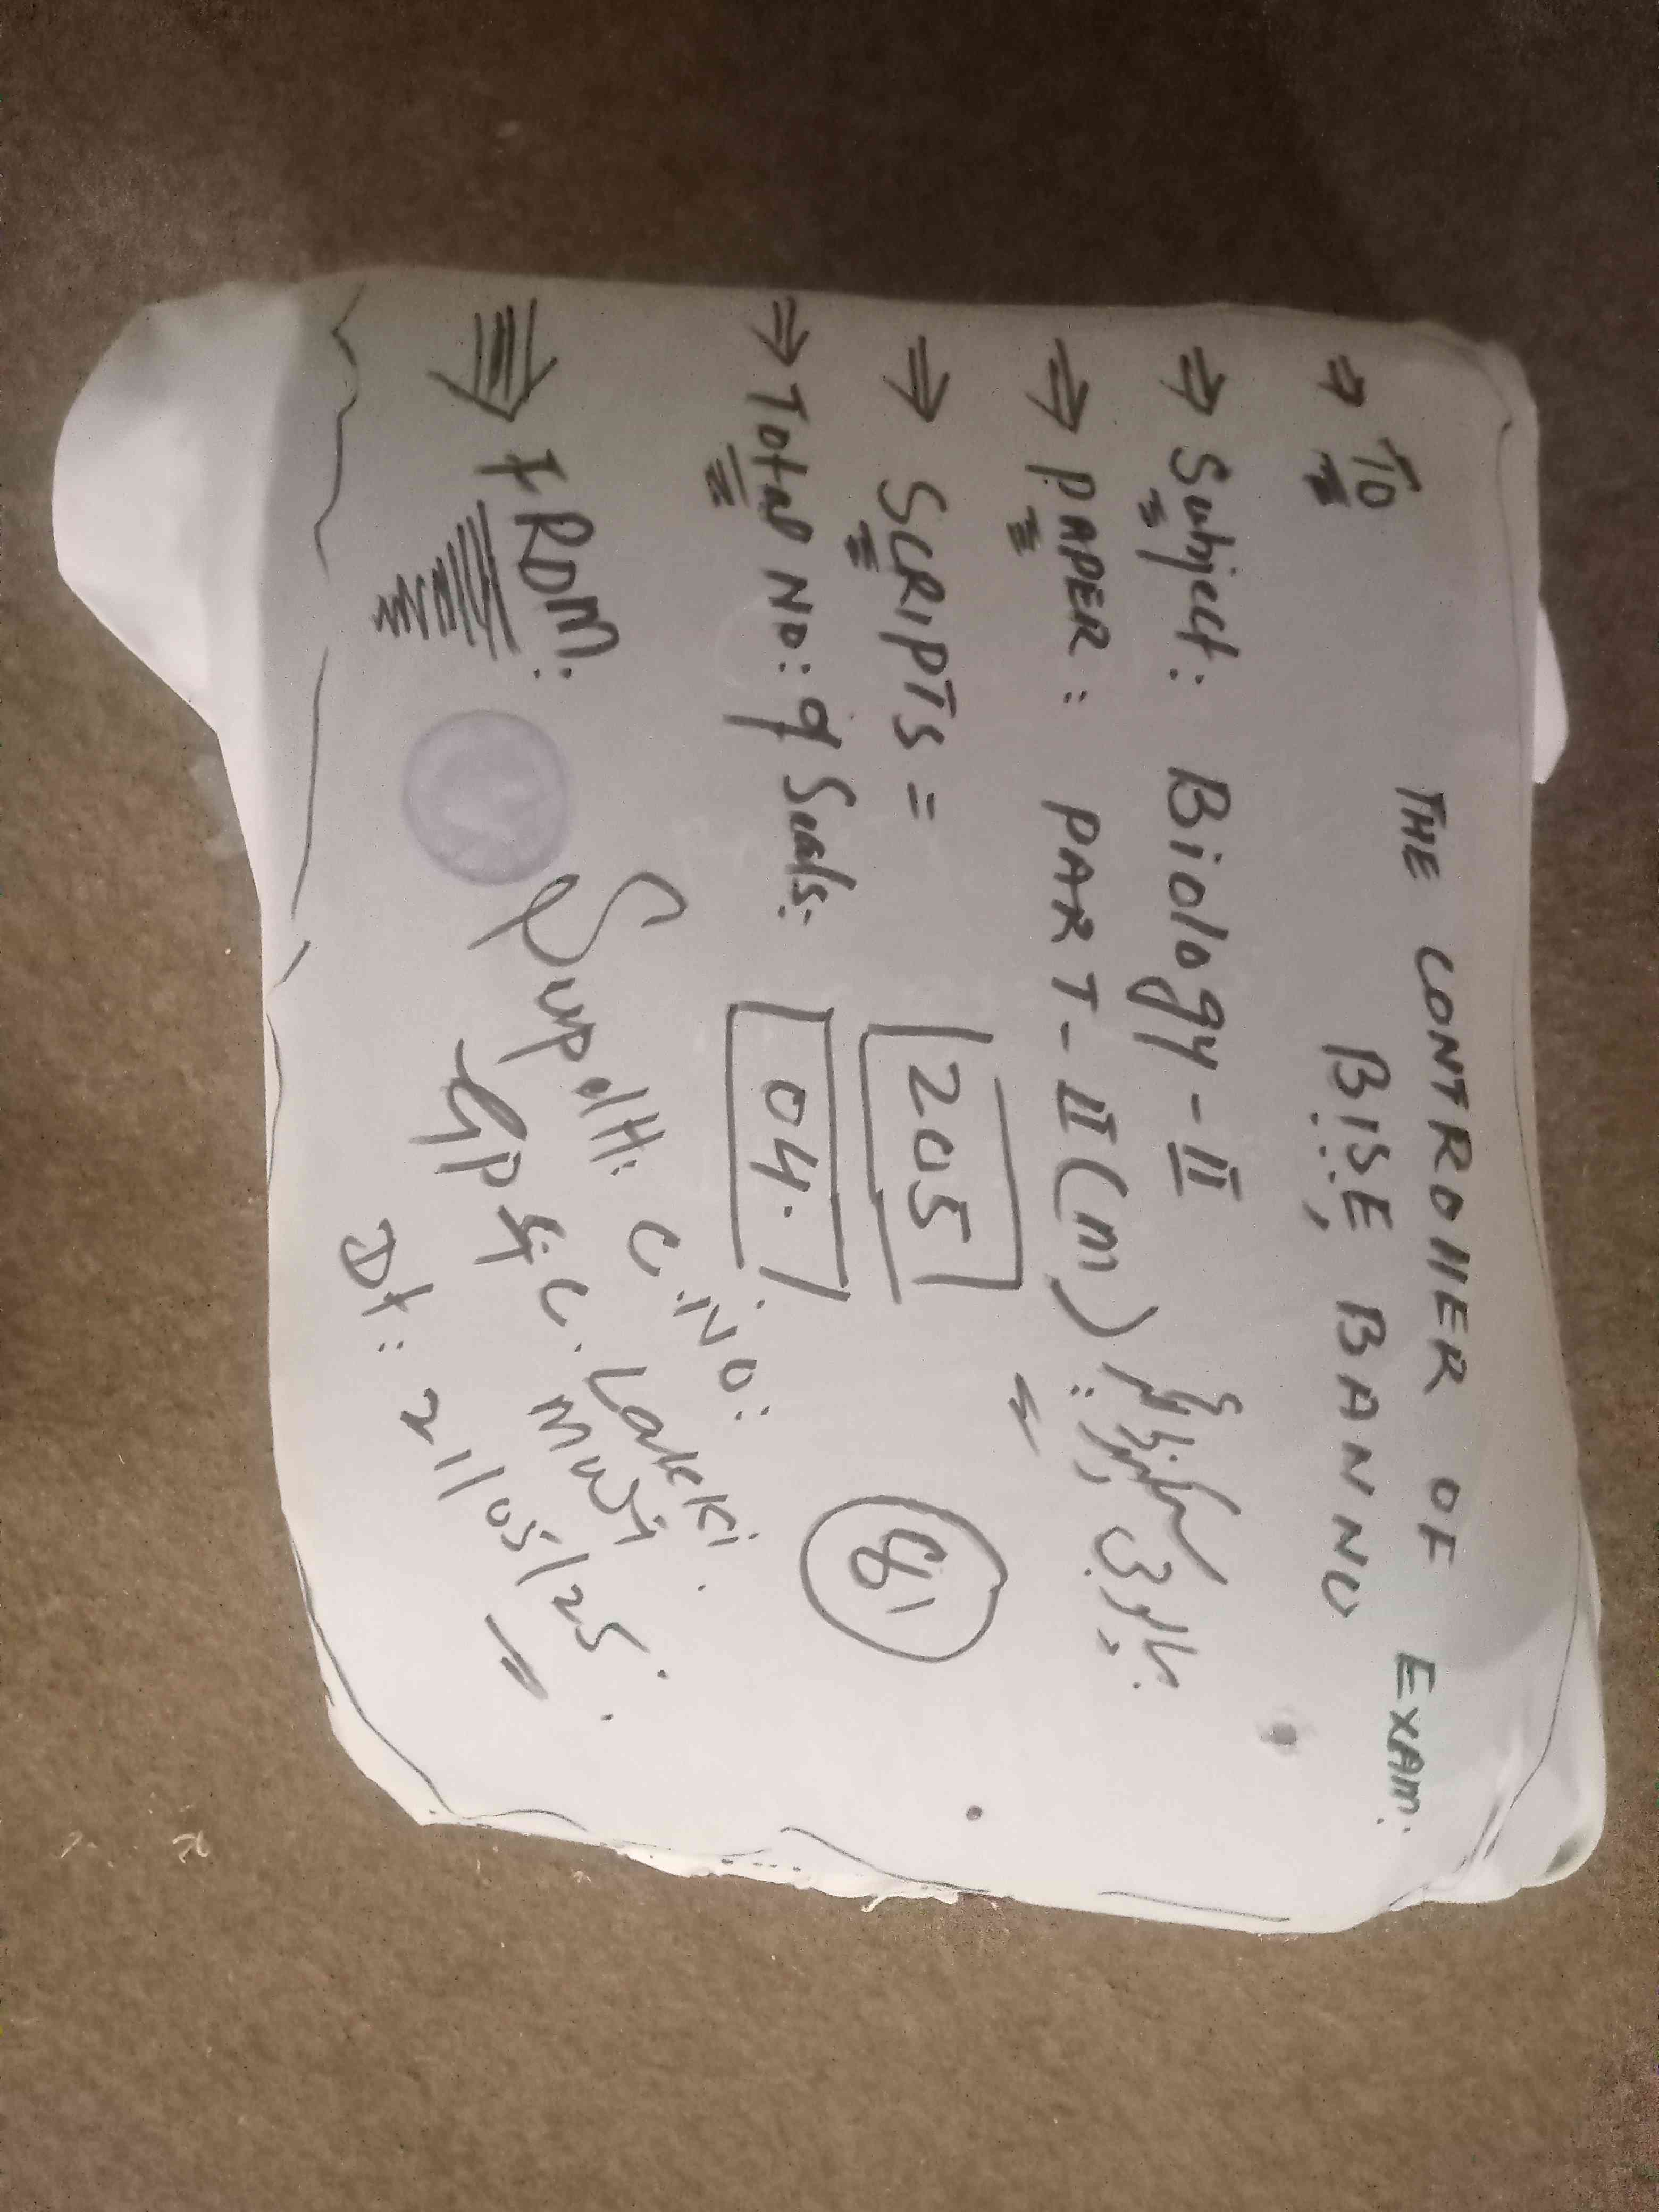 ⇒ To
THE CONTROllER OF EXAM:
BISE, BANNU
⇒ Subject: Biology - II
⇒ PAPER: PART - II (M)
⇒ SCRIPTS = 205
⇒ Total No: of Seals: 04.
⇒ FROM:
Supdtt: C.No: 81
GPGC. Lakki
Dt: 21/05/25.